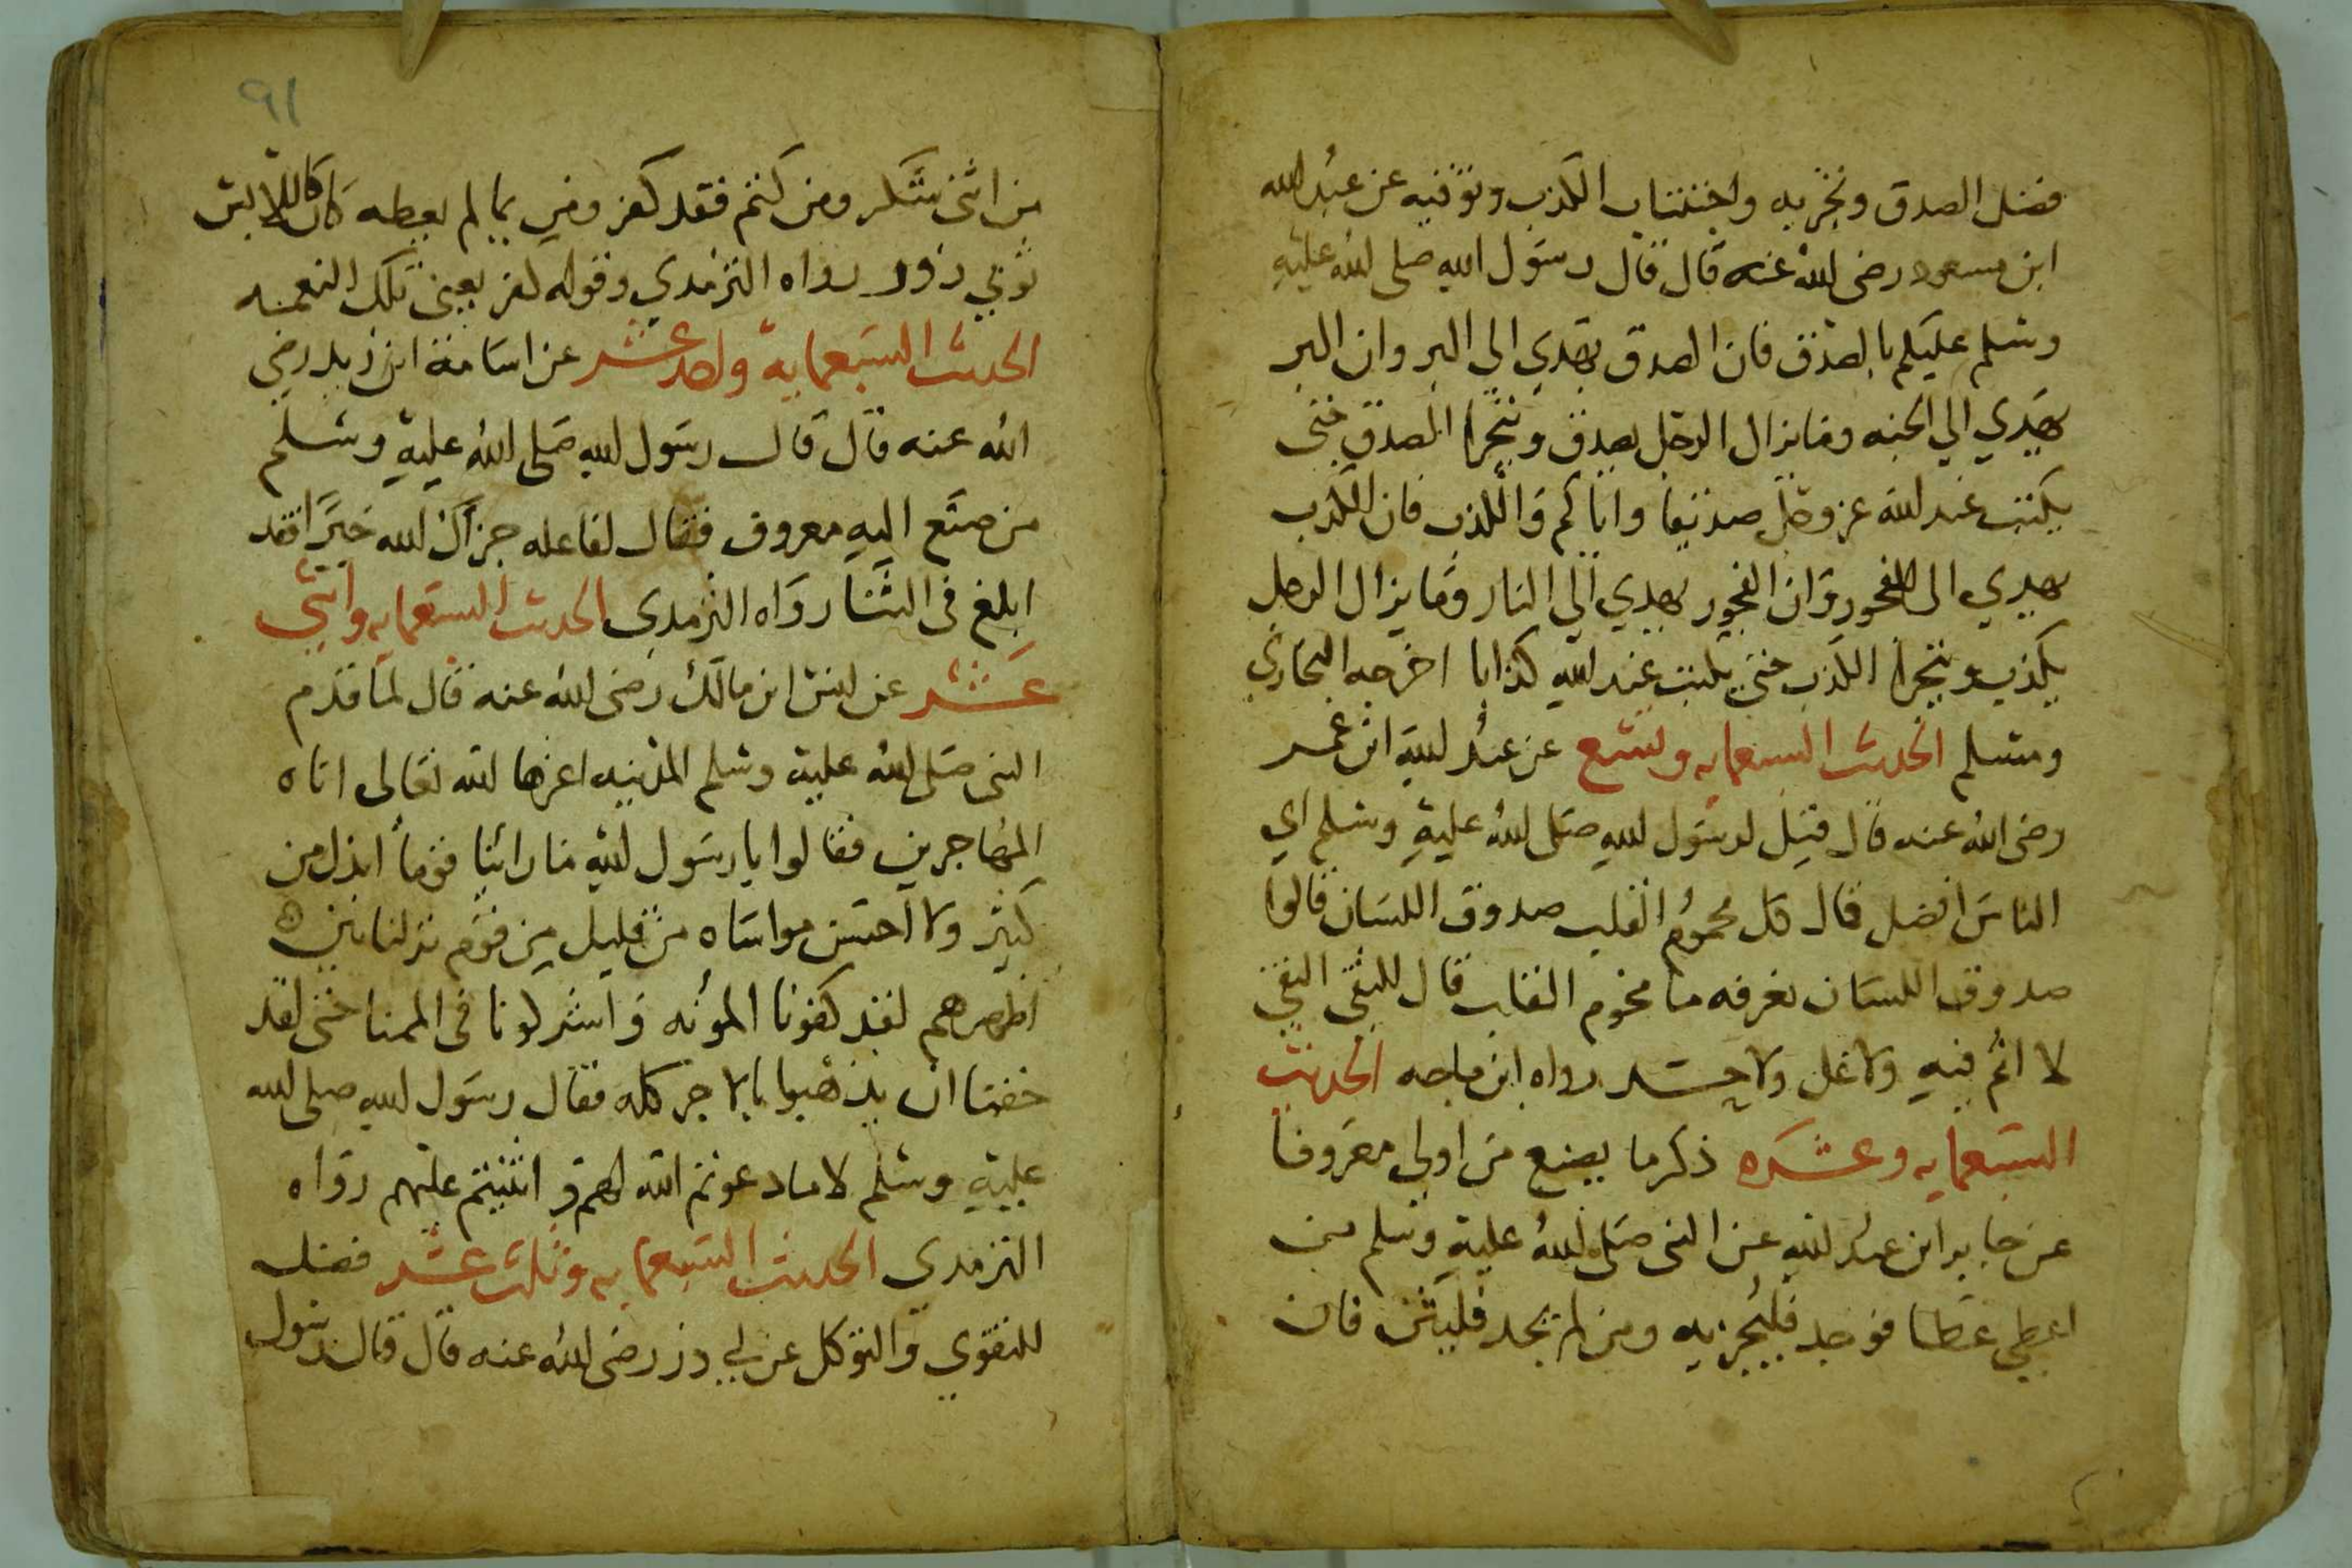 فضل الصدق وتحريه واجتناب الكذب وتوقيه عن عبد الله
ابن مسعود رضى الله عنه قال قال رسول الله صلى الله عليه
وسلم عليكم بالصدق فان الصدق يهدي الى البر وان البر
يهدي الي الجنه وما يزال الرجل يصدق ويتحرا الصدق حتى
يكتب عند الله عز وجل صديقا واياكم والكذب فان الكذب
يهدي الى الفجور وان الفجور يهدي الي النار وما يزال الرجل
يكذب ويتحرا الكذب حتى يكتب عند الله كذابا اخرجه البخاري
ومسلم الحديث السبعمايه وتسع عن عبد الله ابن عمر
رضى الله عنه قال قيل لرسول الله صلى الله عليه وسلم اي
الناس افضل قال كل محموم القلب صدوق اللسان قالوا
صدوق اللسان نعرفه ما مخموم القلب قال التقى النقي
لا اثم فيه ولا غل ولا حسد رواه ابن ماجه الحديث
السبعمايه وعشره ذكر ما يصنع من اولى معروفا
عن جابر ابن عبد الله عن النبى صلى الله عليه وسلم من
اعطي عطا فوجد فليجز به ومن لم يجد فليثن فان
٩١
من اثنى شكر ومن كتم فقد كفر ومن بما لم يعطه كان كاللابس
ثوبي زور رواه الترمدي وقوله كفر يعني تلك النعمه
الحديث السبعماية واحد عشر عن اسامة ابن زيد رضي
الله عنه قال قال رسول الله صلى الله عليه وسلم
من صنع اليه معروف فقال لفاعله جزاك الله خيرا فقد
ابلغ فى الثنا رواه الترمدى الحديث السبعمايه واثني
عشر عن انس ابن مالك رضى الله عنه قال لما قدم
النبى صلى الله عليه وسلم المدينه اعزها الله تعالى اتاه
المهاجرين فقالوا يا رسول الله ما رائنا قوما ابذل من
كثير ولا احسن مواساه من قليل من قوم نزلنا بين
اظهرهم لقد كفونا المؤنه واشركونا فى المهنا حتى لقد
خفنا ان يذهبوا بالاجر كله فقال رسول الله صلى الله
عليه وسلم لا ما دعوتم الله لهم واثنيتم عليهم رواه
الترمدى الحديث السبعمايه وثلث عشر فضل
للتقوي والتوكل عن ابي ذر رضى الله عنه قال قال رسول